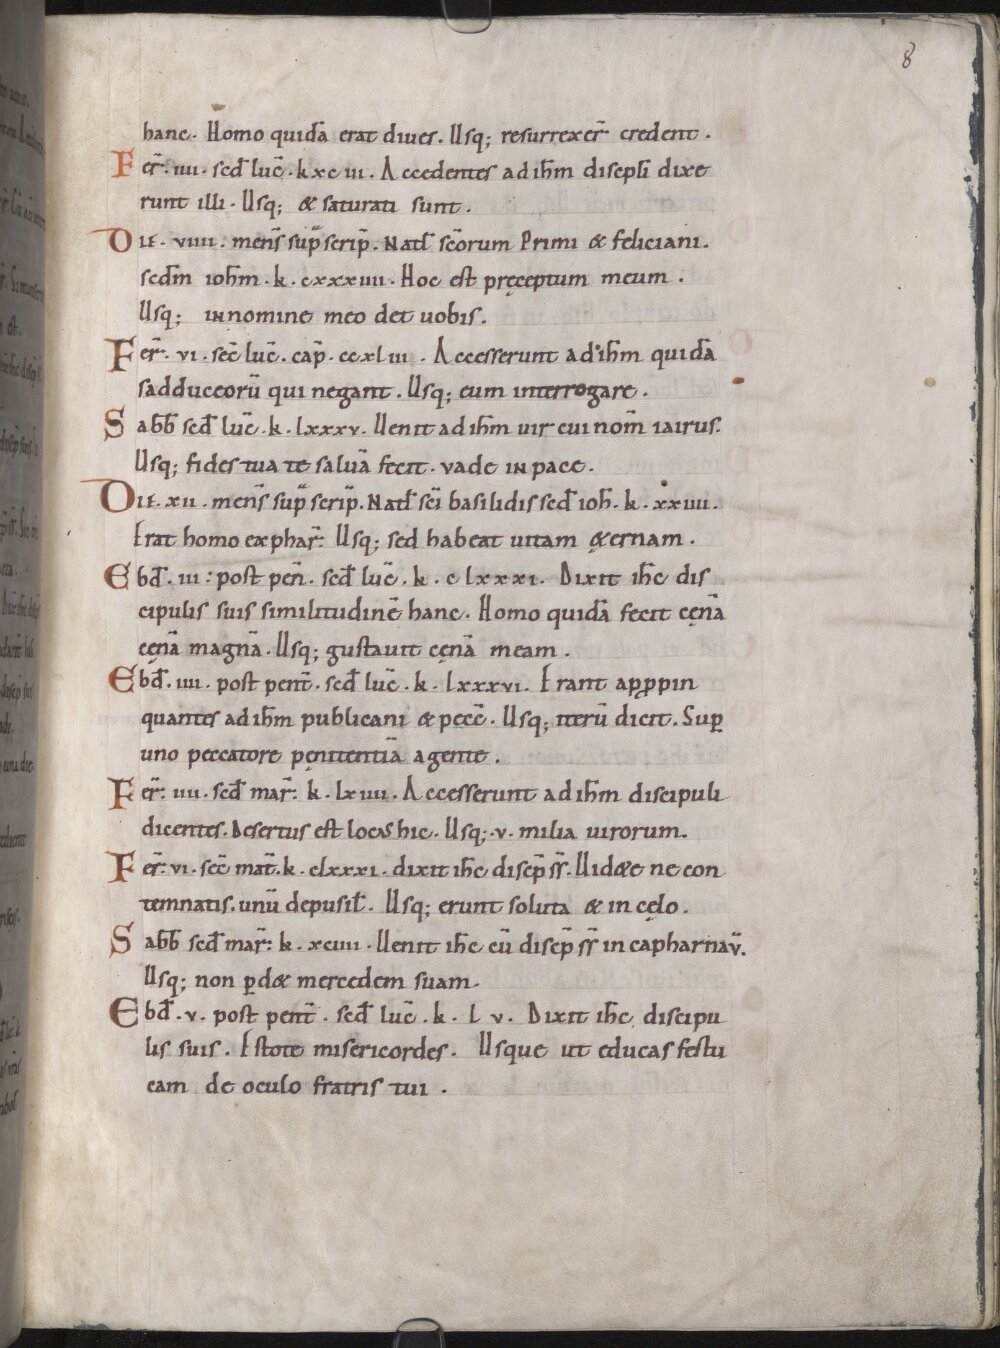 8
hanc. Homo quidā erat diues. Usq; resurrexer̄ credent.
Fer̄. iiii. scđ luc̄. k xc iii. Accedentes ad ih̄m discpłi dixe
runt illi. Usq; & saturati sunt.
Die. viiii. mens̄ sup̄ scrip̄. Natł sc̄orum Primi & feliciani.
scđm ioh̄m. k. cxxxiiii. Hoc est pręceptum meum.
Usq; in nomine meo det uobis.
Fer̄. vi. sec̄ luc̄. cap̄. ccxliii. Accesserunt ad ih̄m quidā
sadduceorū qui negant. Usq; eum interrogare.
Sabb̄ scđ luc̄. k. lxxxv. Uenit ad ih̄m uir cui nom̄ iairus.
Usq; fides tua te saluā fecit. vade in pace.
Die. xii. mens̄ sup̄ scrip̄. Natł sc̄i basilidis scđ ioh̄. k. xxiiii.
Erat homo ex phar̄. Usq; sed habeat uitam &ernam.
Ebđ. iii. post pen̄. scđ luc̄. k. clxxxi. Dixit ih̄c dis
cipulis suis similitudinē hanc. Homo quidā fecit cęnā
cęnā magnā. Usq; gustauit cęnā meam.
Ebđ. iiii. post pent̄. scđ luc̄. k. lxxxvi. Erant ap̱p̱pin
quantes ad ih̄m publicani & pecc̄. Usq; iterū dicit. Sup̱
uno peccatore pęnitentiā agente.
Fer̄. iiii. scđ mar̄. k. lxiiii. Accesserunt ad ih̄m discipuli
dicentes. Desertus est locus hic. Usq; v. milia uirorum.
Fer̄. vi. sec̄ mat̄. k. clxxxi. dixit ih̄c discip̄ s̄s̄. Uid&e ne con
temnatis. unū depusił. Usq; erunt soluta & in cęlo.
Sabb̄ scđ mar̄. k. xciiii. Uenit ih̄c cū discip̄ s̄s̄ in capharnav̄.
Usq; non p̱d& mercedem suam.
Ebđ. v. post pent̄. scđ luc̄. k. l v. Dixit ih̄c discipu
lis suis. Estote misericordes. Usque ut educas festu
cam de oculo fratris tui.